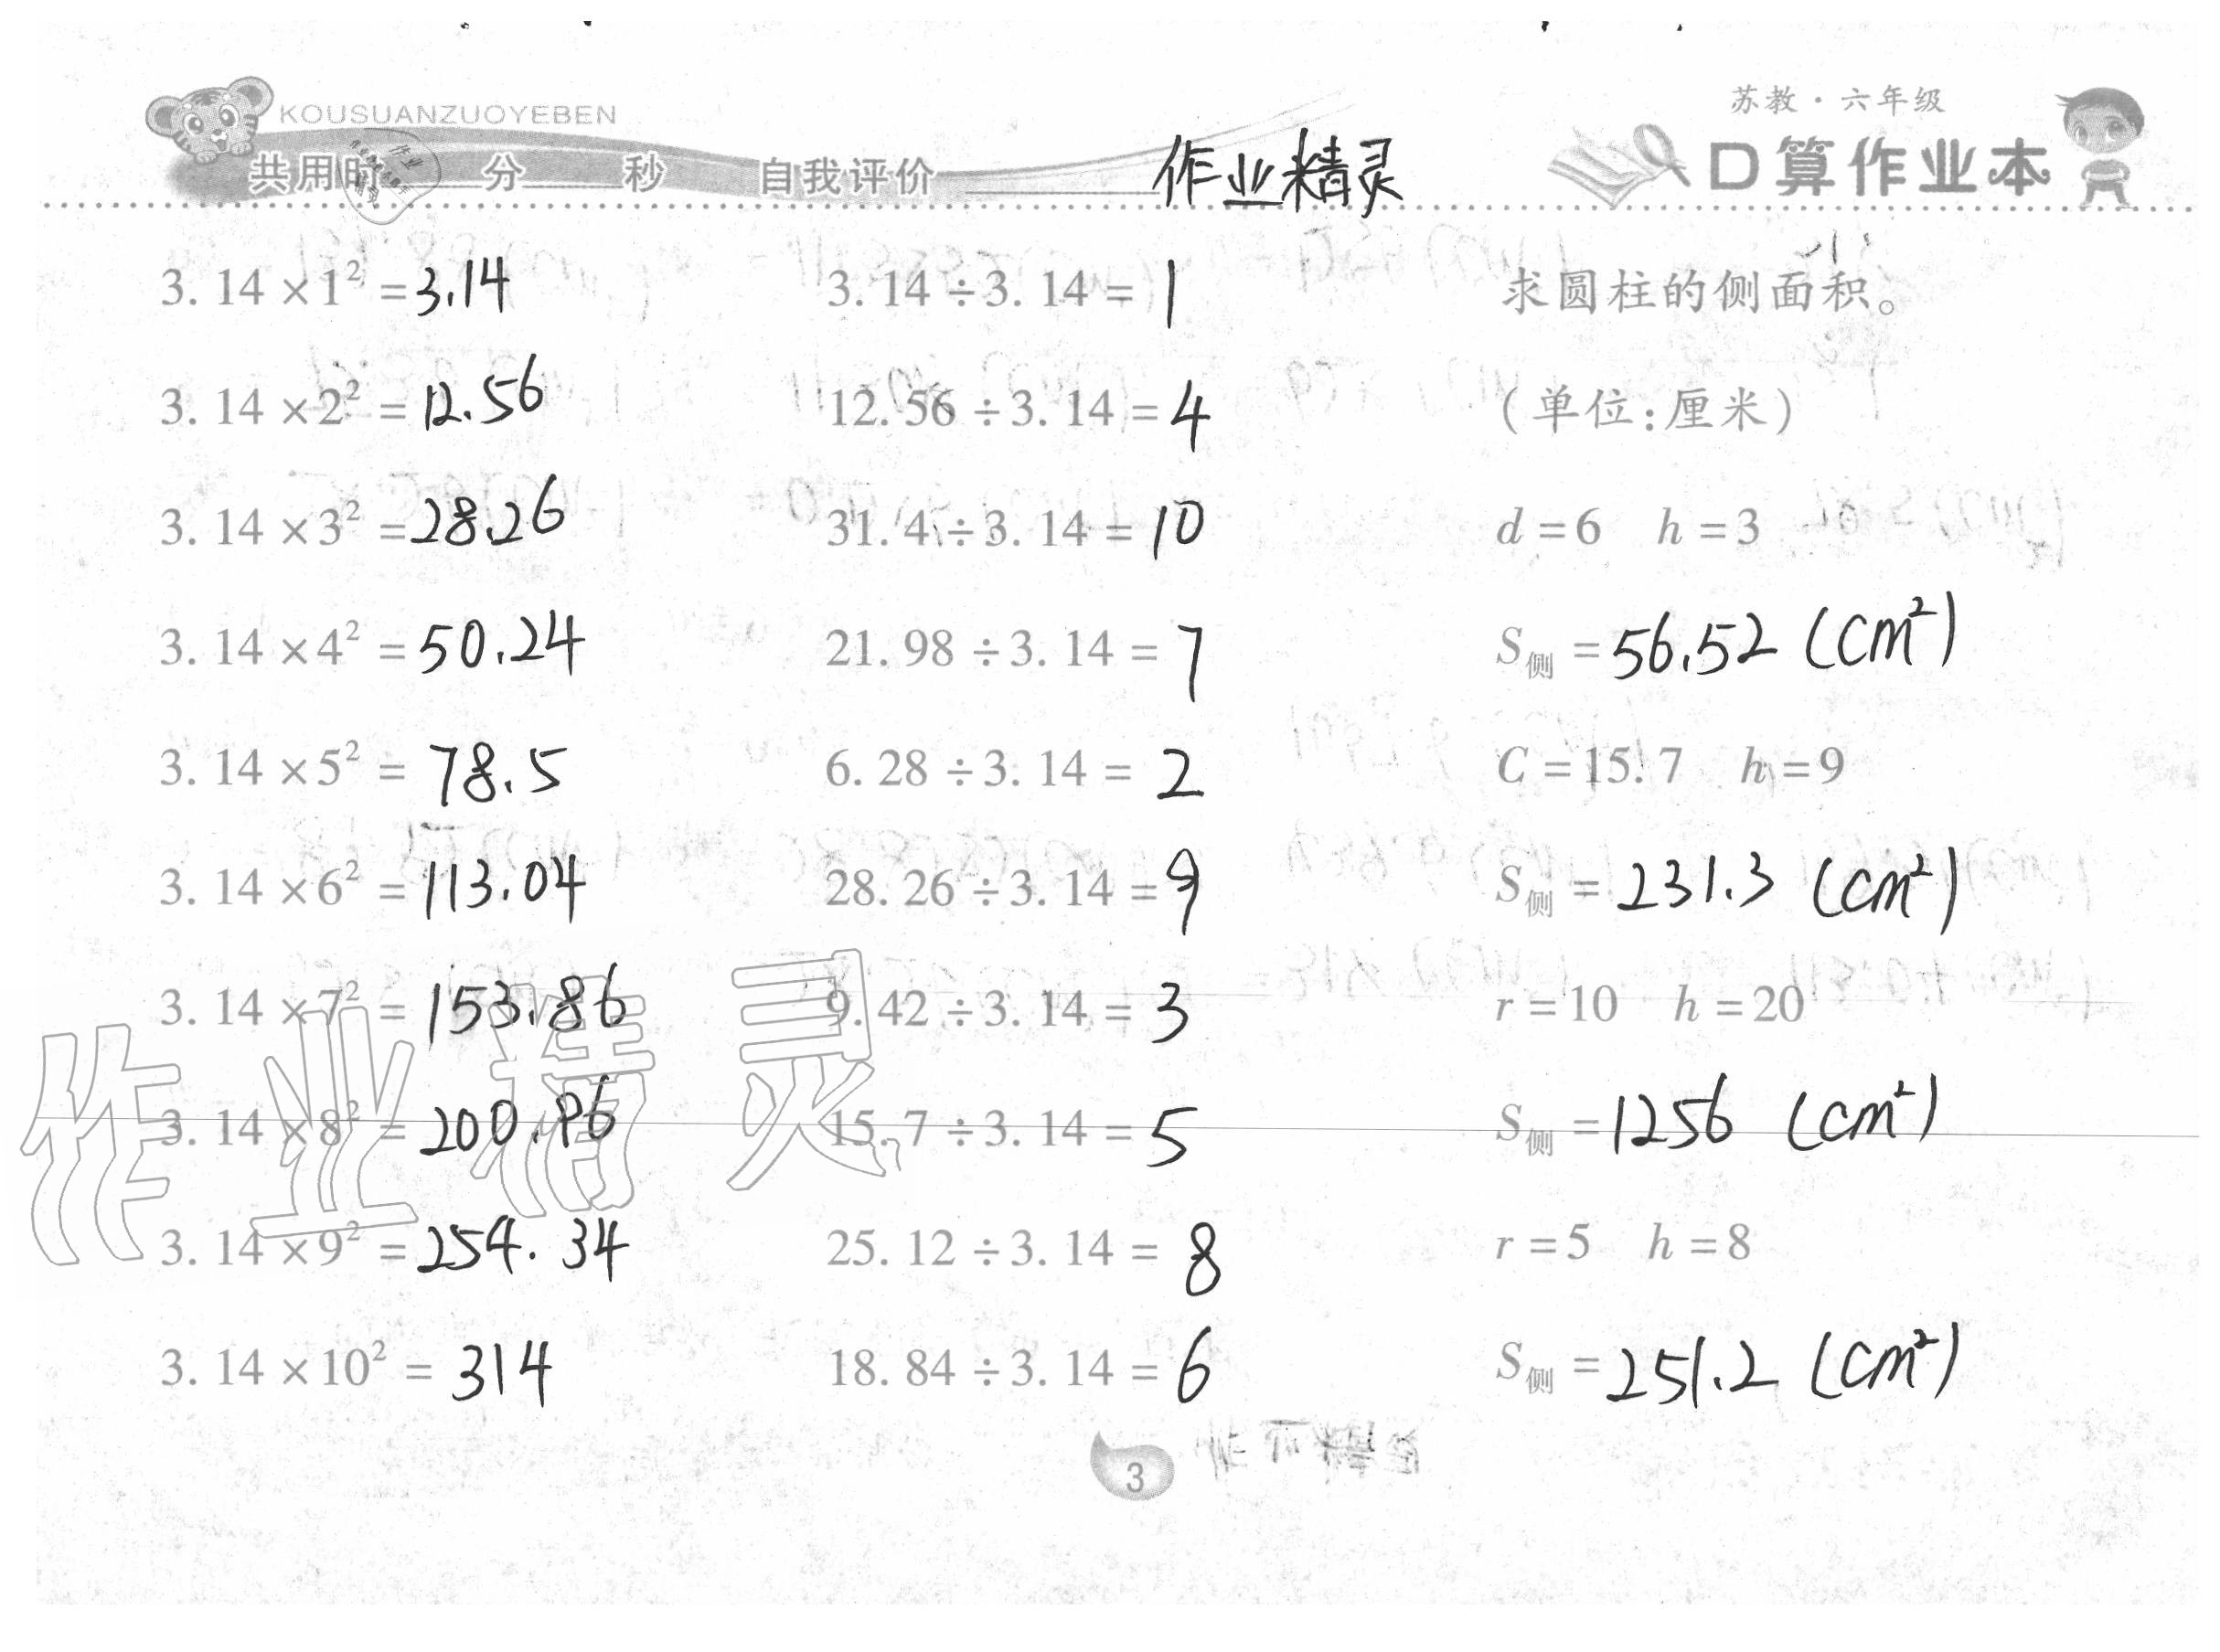 KOUSUANZUOYEBEN
苏教·六年级
口算作业本
共用时 分 秒 自我评价 作业精灵
3.14×1²=3.14
3.14×2²=12.56
3.14×3²=28.26
3.14×4²=50.24
3.14×5²=78.5
3.14×6²=113.04
3.14×7²=153.86
3.14×8²=200.96
3.14×9²=254.34
3.14×10²=314
3.14÷3.14=1
12.56÷3.14=4
31.4÷3.14=10
21.98÷3.14=7
6.28÷3.14=2
28.26÷3.14=9
9.42÷3.14=3
15.7÷3.14=5
25.12÷3.14=8
18.84÷3.14=6
求圆柱的侧面积。
(单位:厘米)
d=6 h=3
S侧=56.52 (cm²)
C=15.7 h=9
S侧=231.3 (cm²)
r=10 h=20
S侧=1256 (cm²)
r=5 h=8
S侧=251.2 (cm²)
作业精灵
3